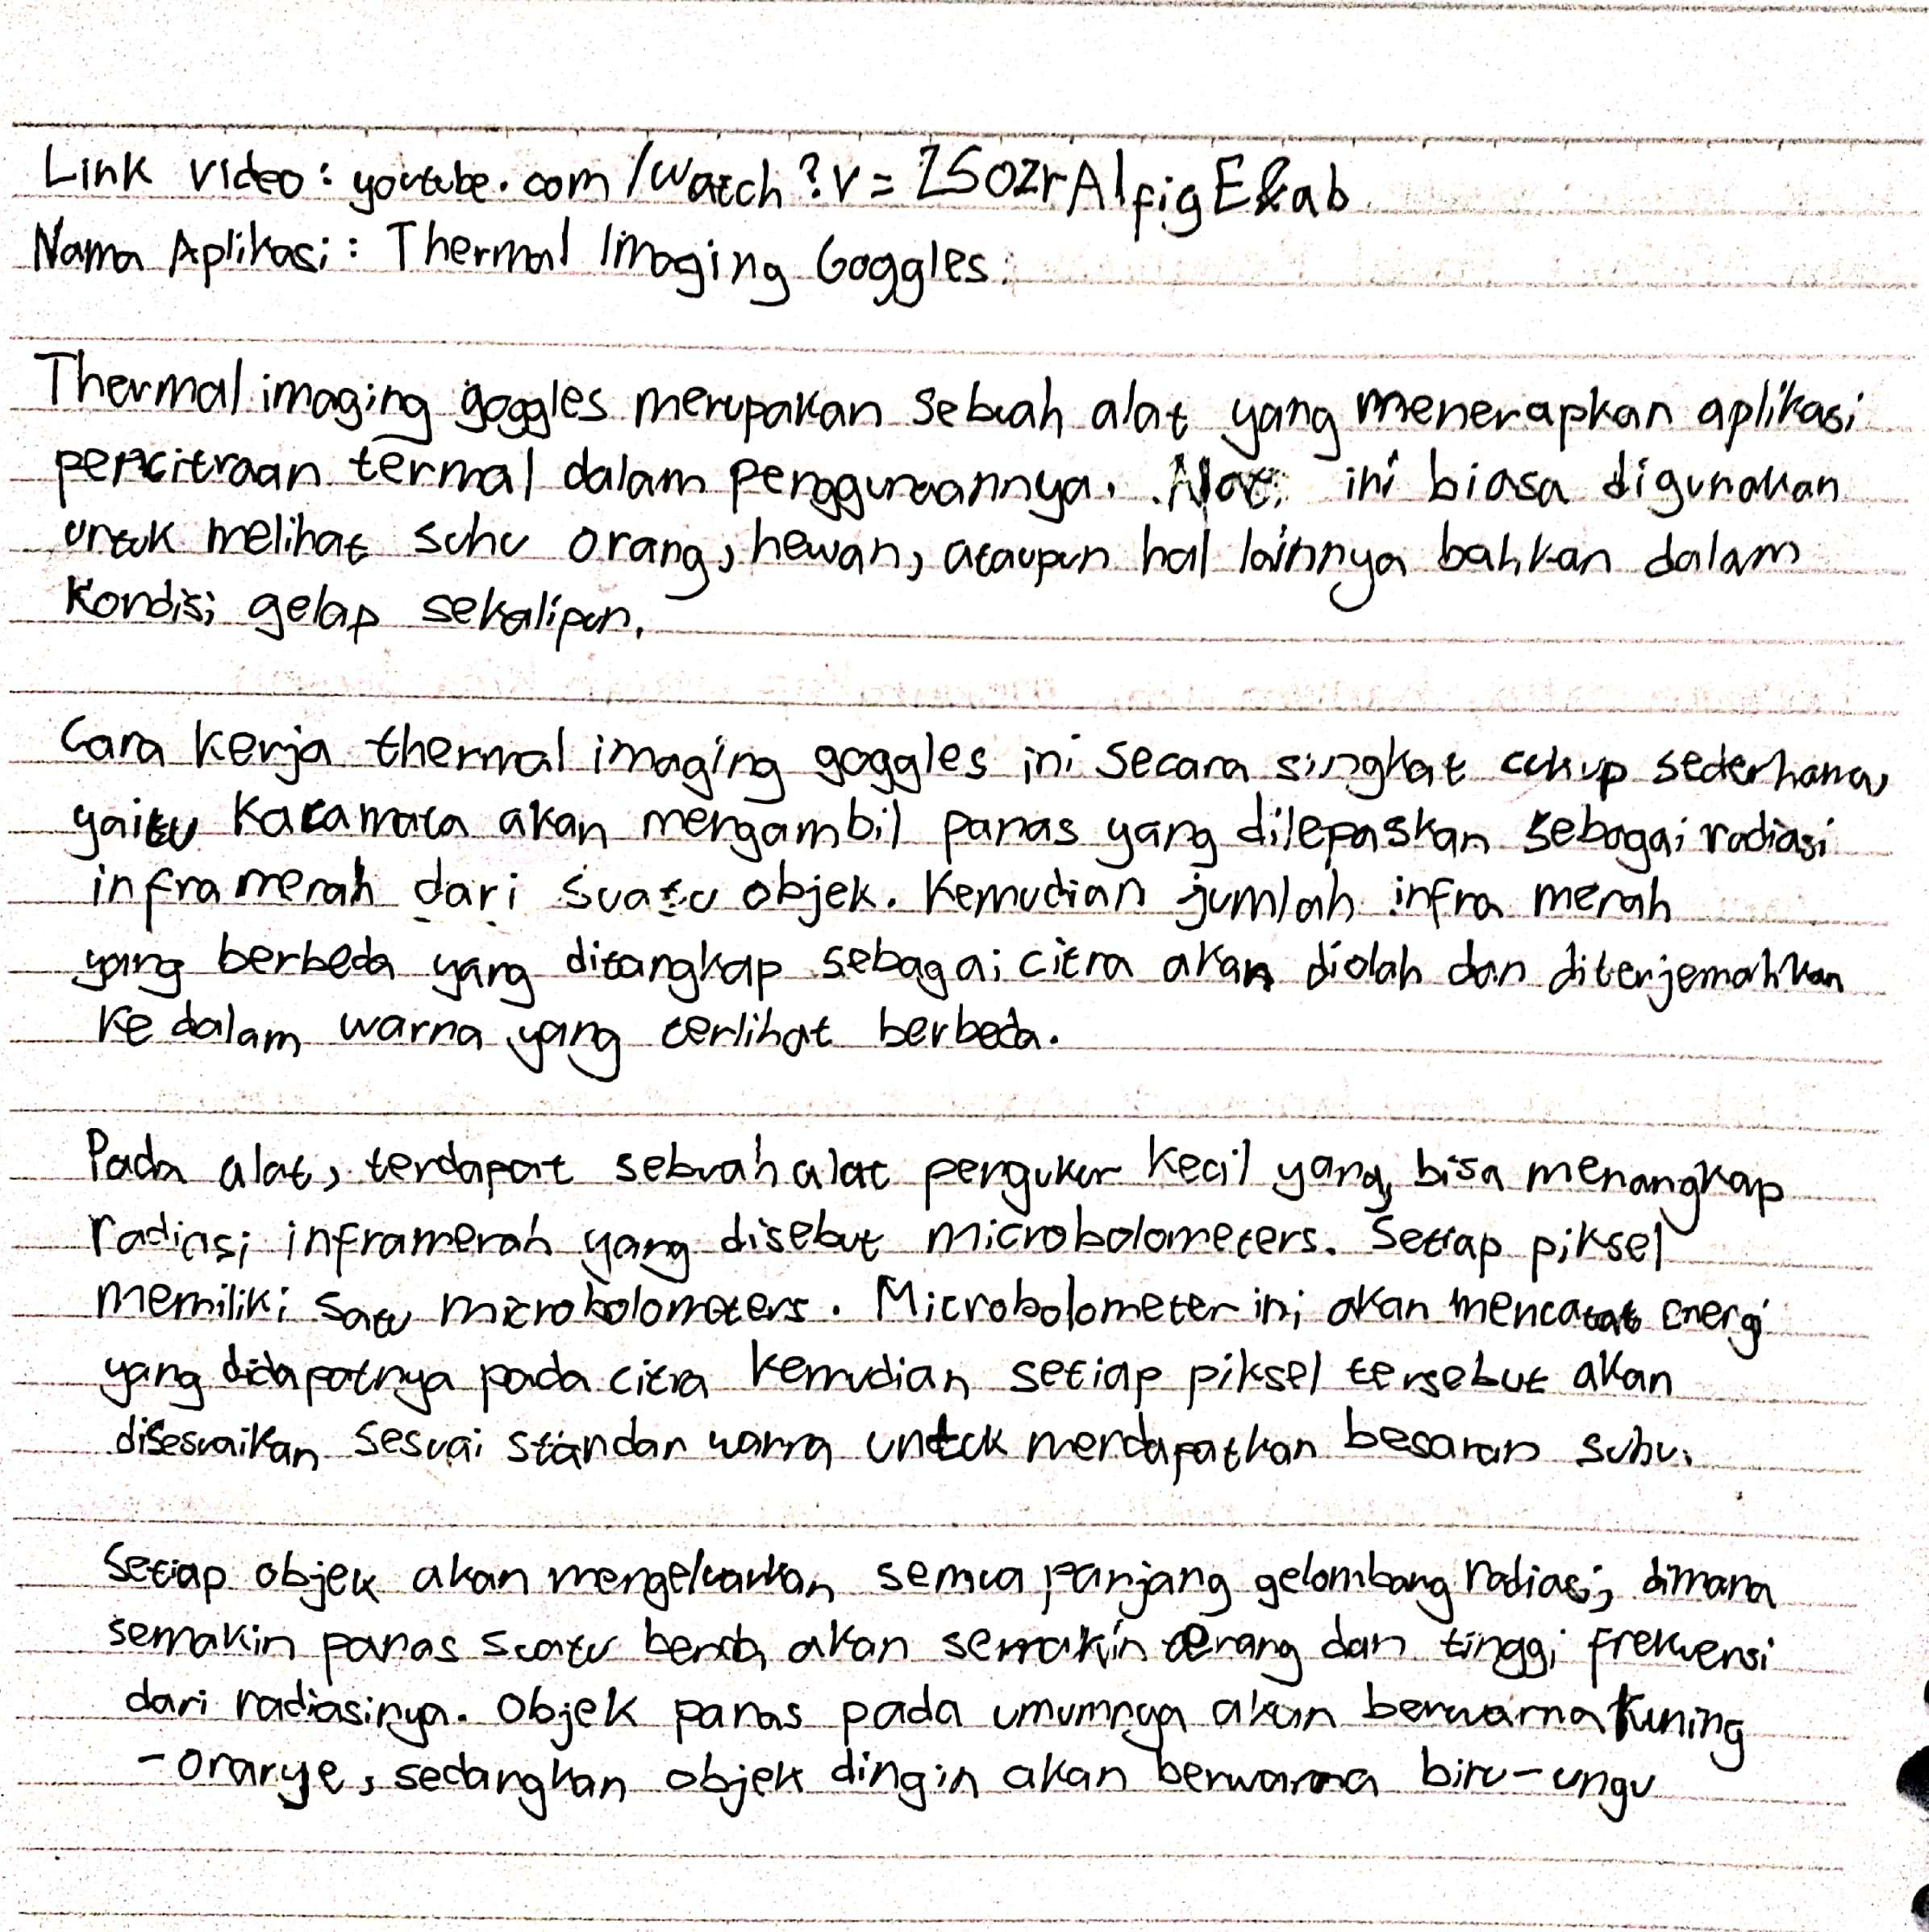 Link video : youtube.com/watch?v=ZSozrAlfigE&ab
Nama Aplikasi : Thermal Imaging Goggles.
Thermal imaging goggles merupakan sebuah alat yang menerapkan aplikasi
pencitraan termal dalam penggunaannya. Alat ini biasa digunakan
untuk melihat suhu orang, hewan, ataupun hal lainnya bahkan dalam
kondisi gelap sekalipun.
Cara kerja thermal imaging goggles ini secara singkat cukup sederhana,
yaitu kacamata akan mengambil panas yang dilepaskan sebagai radiasi
inframerah dari suatu objek. Kemudian jumlah infra merah
yang berbeda yang ditangkap sebagai citra akan diolah dan diterjemahkan
ke dalam warna yang terlihat berbeda.
Pada alat, terdapat sebuah alat pengukur kecil yang bisa menangkap
radiasi inframerah yang disebut microbolometers. Setiap piksel
memiliki satu microbolometers. Microbolometer ini akan mencatat energi
yang didapatnya pada citra kemudian setiap piksel tersebut akan
disesuaikan sesuai standar warna untuk mendapatkan besaran suhu.
Setiap objek akan mengeluarkan semua panjang gelombang radiasi, dimana
semakin panas suatu benda akan semakin terang dan tinggi frekuensi
dari radiasinya. Objek panas pada umumnya akan berwarna kuning
-oranye, sedangkan objek dingin akan berwarna biru-ungu